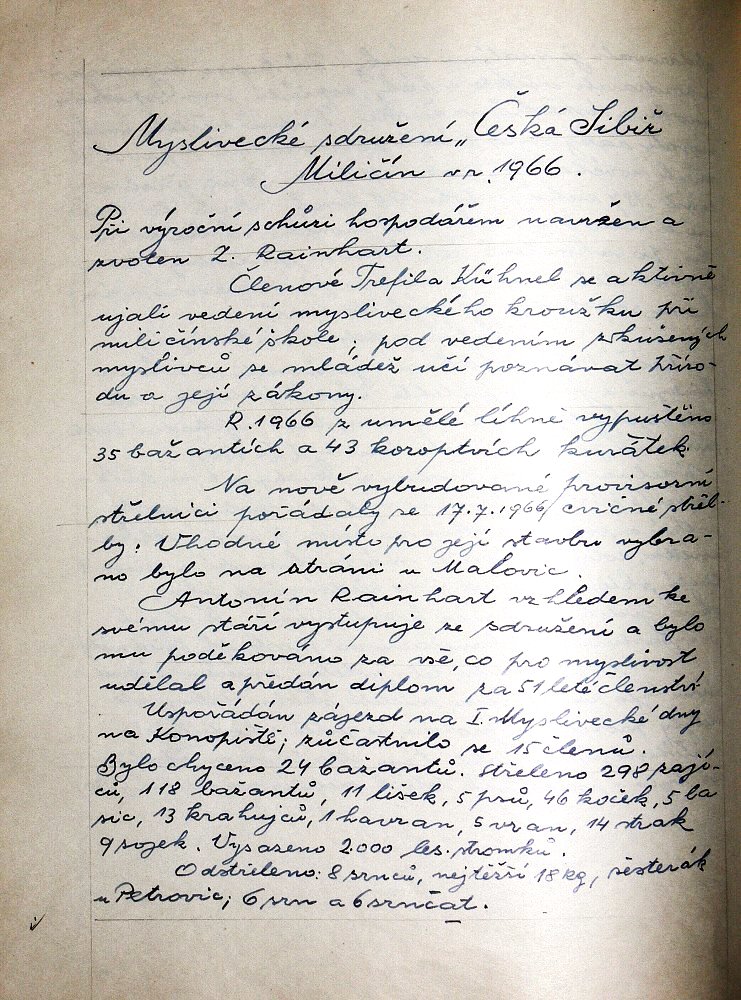 Myslivecké sdružení „Česká Sibiř
Miličín v r. 1966.
Při výroční schůzi hospodářem navržen a
zvolen Z. Rainhart.
Členové Trefil a Kühnel se aktivně
ujali vedení mysliveckého kroužku při
miličínské škole; pod vedením zkušených
myslivců se mládež učí poznávat příro-
du a její zákony.
R. 1966 z umělé líhně vypuštěno
35 bažantích a 43 koroptvích kuřátek.
Na nově vybudované provisorní
střelnici pořádaly se 17.7.1966 cvičné střel-
by. Vhodné místo pro její stavbu vybrá-
no bylo na stráni u Malovic.
Antonín Rainhart vzhledem ke
svému stáří vystupuje ze sdružení a bylo
mu poděkováno za vše, co pro myslivost
udělal a předán diplom za 51 leté členství.
Uspořádán zájezd na I. Myslivecké dny
na Konopiště; zúčastnilo se 15 členů.
Bylo chyceno 24 bažantů. Střeleno 298 zají-
ců, 118 bažantů, 11 lišek, 5 psů, 46 koček, 5 la
sic, 13 krahujců, 1 havran, 5 vran, 14 strak
9 sojek. Vysázeno 2.000 les. stromků.
Odstřeleno: 8 srnců, nejtěžší 18 kg, šesterák
u Petrovic; 6 srn a 6 srnčat.